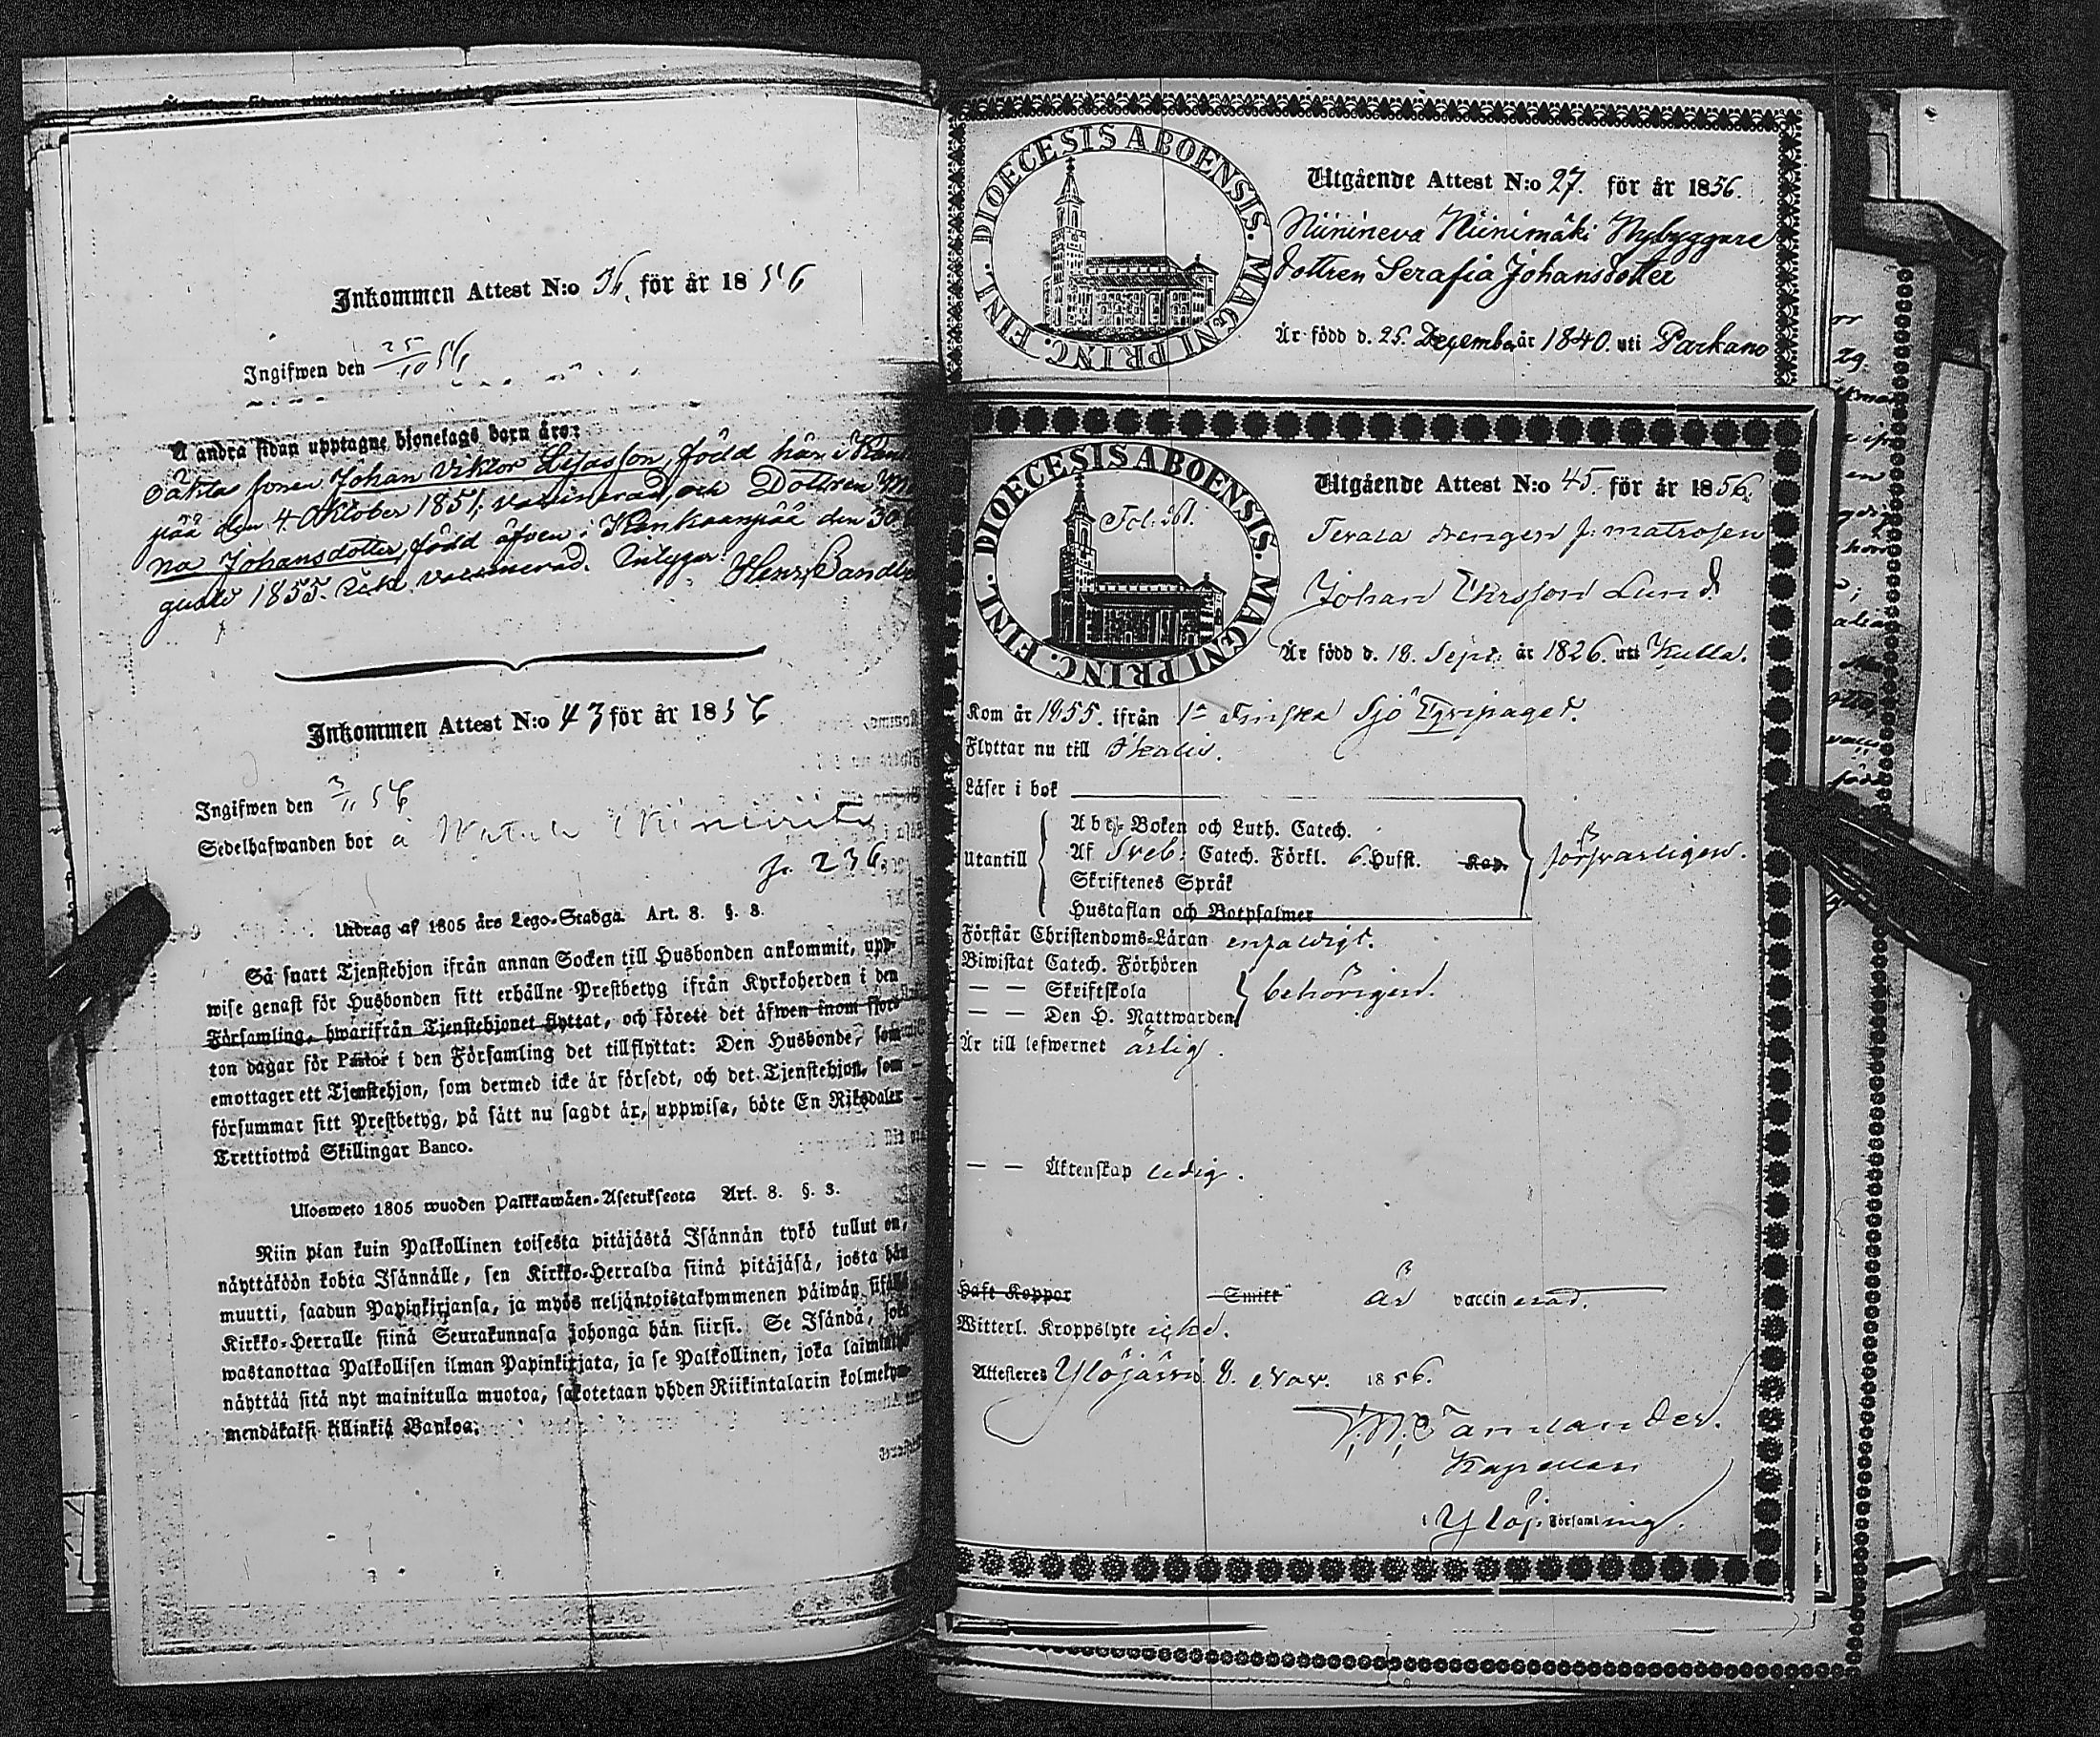 Inkommen Attest N:o 36. för år 1856
Ingifwen den 25/10 56
Å andra sidan upptagne hjonelags barn äro:
äkta sonen Johan Viktor Elias son, född här i Kan
pää den 4 Oktober 1851; vaccinerad, och Dottren
na Johansdotter, född äfven i Kankaanpää den 30
gusti 1855. vaccinerad. Intygar: Henr. Sandl
Inkommen Attest N:o 43 för år 1856
Ingifwen den 3/11 56
Sedelhafwanden bor å
p. 236.
Utdrag af 1805 års Lego-Stadga Art. 8. §. 3.
Så snart Tjenstehjon ifrån annan Socken till Husbonden ankommit, upp-
wise genast för Husbonden sitt erhållne Prestbetyg ifrån Kyrkoherden i den
Församling, hwarifrån Tjenstehjonet flyttat, och förete det äfwen inom fjor-
ton dagar för Pastor i den Församling det tillflyttat: Den Husbonde, som
emottager ett Tjenstehjon, som dermed icke är försedt, och det Tjenstehjon, som
försummar sitt Prestbetyg, på sätt nu sagdt är, uppwisa, böte En Riksdaler
Trettiotwå Skillingar Banco.
Ulosweto 1805 wuoden Palkkawäen-Asetuksesta Art. 8. §. 3.
Niin pian kuin Palkollinen toisesta pitäjästä Isännän tykö tullut on,
näyttäköön kohta Isännälle, sen Kirkko-Herralda siinä pitäjäsä, josta hän
muutti, saadun Papinkirjansa, ja myös neljäntoistakymmenen päiwän sisällä
Kirkko-Herralle siinä Seurakunnasa johonga hän siirsi. Se Isändä, joka
wastanottaa Palkollisen ilman Papinkirjata, ja se Palkollinen, joka laimin
näyttää sitä nyt mainitulla muotoa, sakotetaan yhden Riikintalarin kolmekym-
mendäkaksi killinkiä Bankoa.
DIOECESIS ABOENSIS. MAGNI PRINC. FINL.
Utgående Attest N:o 27. för år 1856.
Niinineva Niinimäki Nybyggare
dottren Serafia Johansdotter
Är född d. 25. Dezember år 1840. uti Parkano
DIOECESIS ABOENSIS. MAGNI PRINC. FINL.
Fol: 161.
Utgående Attest N:o 45. för år 1856.
drengen f: matrosen
Johan Eriksson Lund
Är född d. 18. Sept. år 1826. uti Kulla.
Kom år 1855. ifrån 1a Finska Sjö Eqvipaget.
Flyttar nu till Ikalis.
Läser i bok
Utantill
Abc-Boken och Luth. Catech.
Af Sveb: Catech. Förkl. 6. Hufst. Kap.
Skriftenes Språk
Hustaflan och Botpsalmer
försvarligen.
Förstår Christendoms-Läran enfaldigt.
Biwistat Catech. Förhören
— — Skriftskola
— — Den H. Nattwarden
behörigen.
Är till lefwernet ärlig.
— — Äktenskap ledig.
Haft Koppor Smitt är vaccinerad.
Witterl. Kroppslyte icke.
Attesteres Ylöjärvi 8. Nov. 1856.
Kapellan
i Ylöj. Församling.